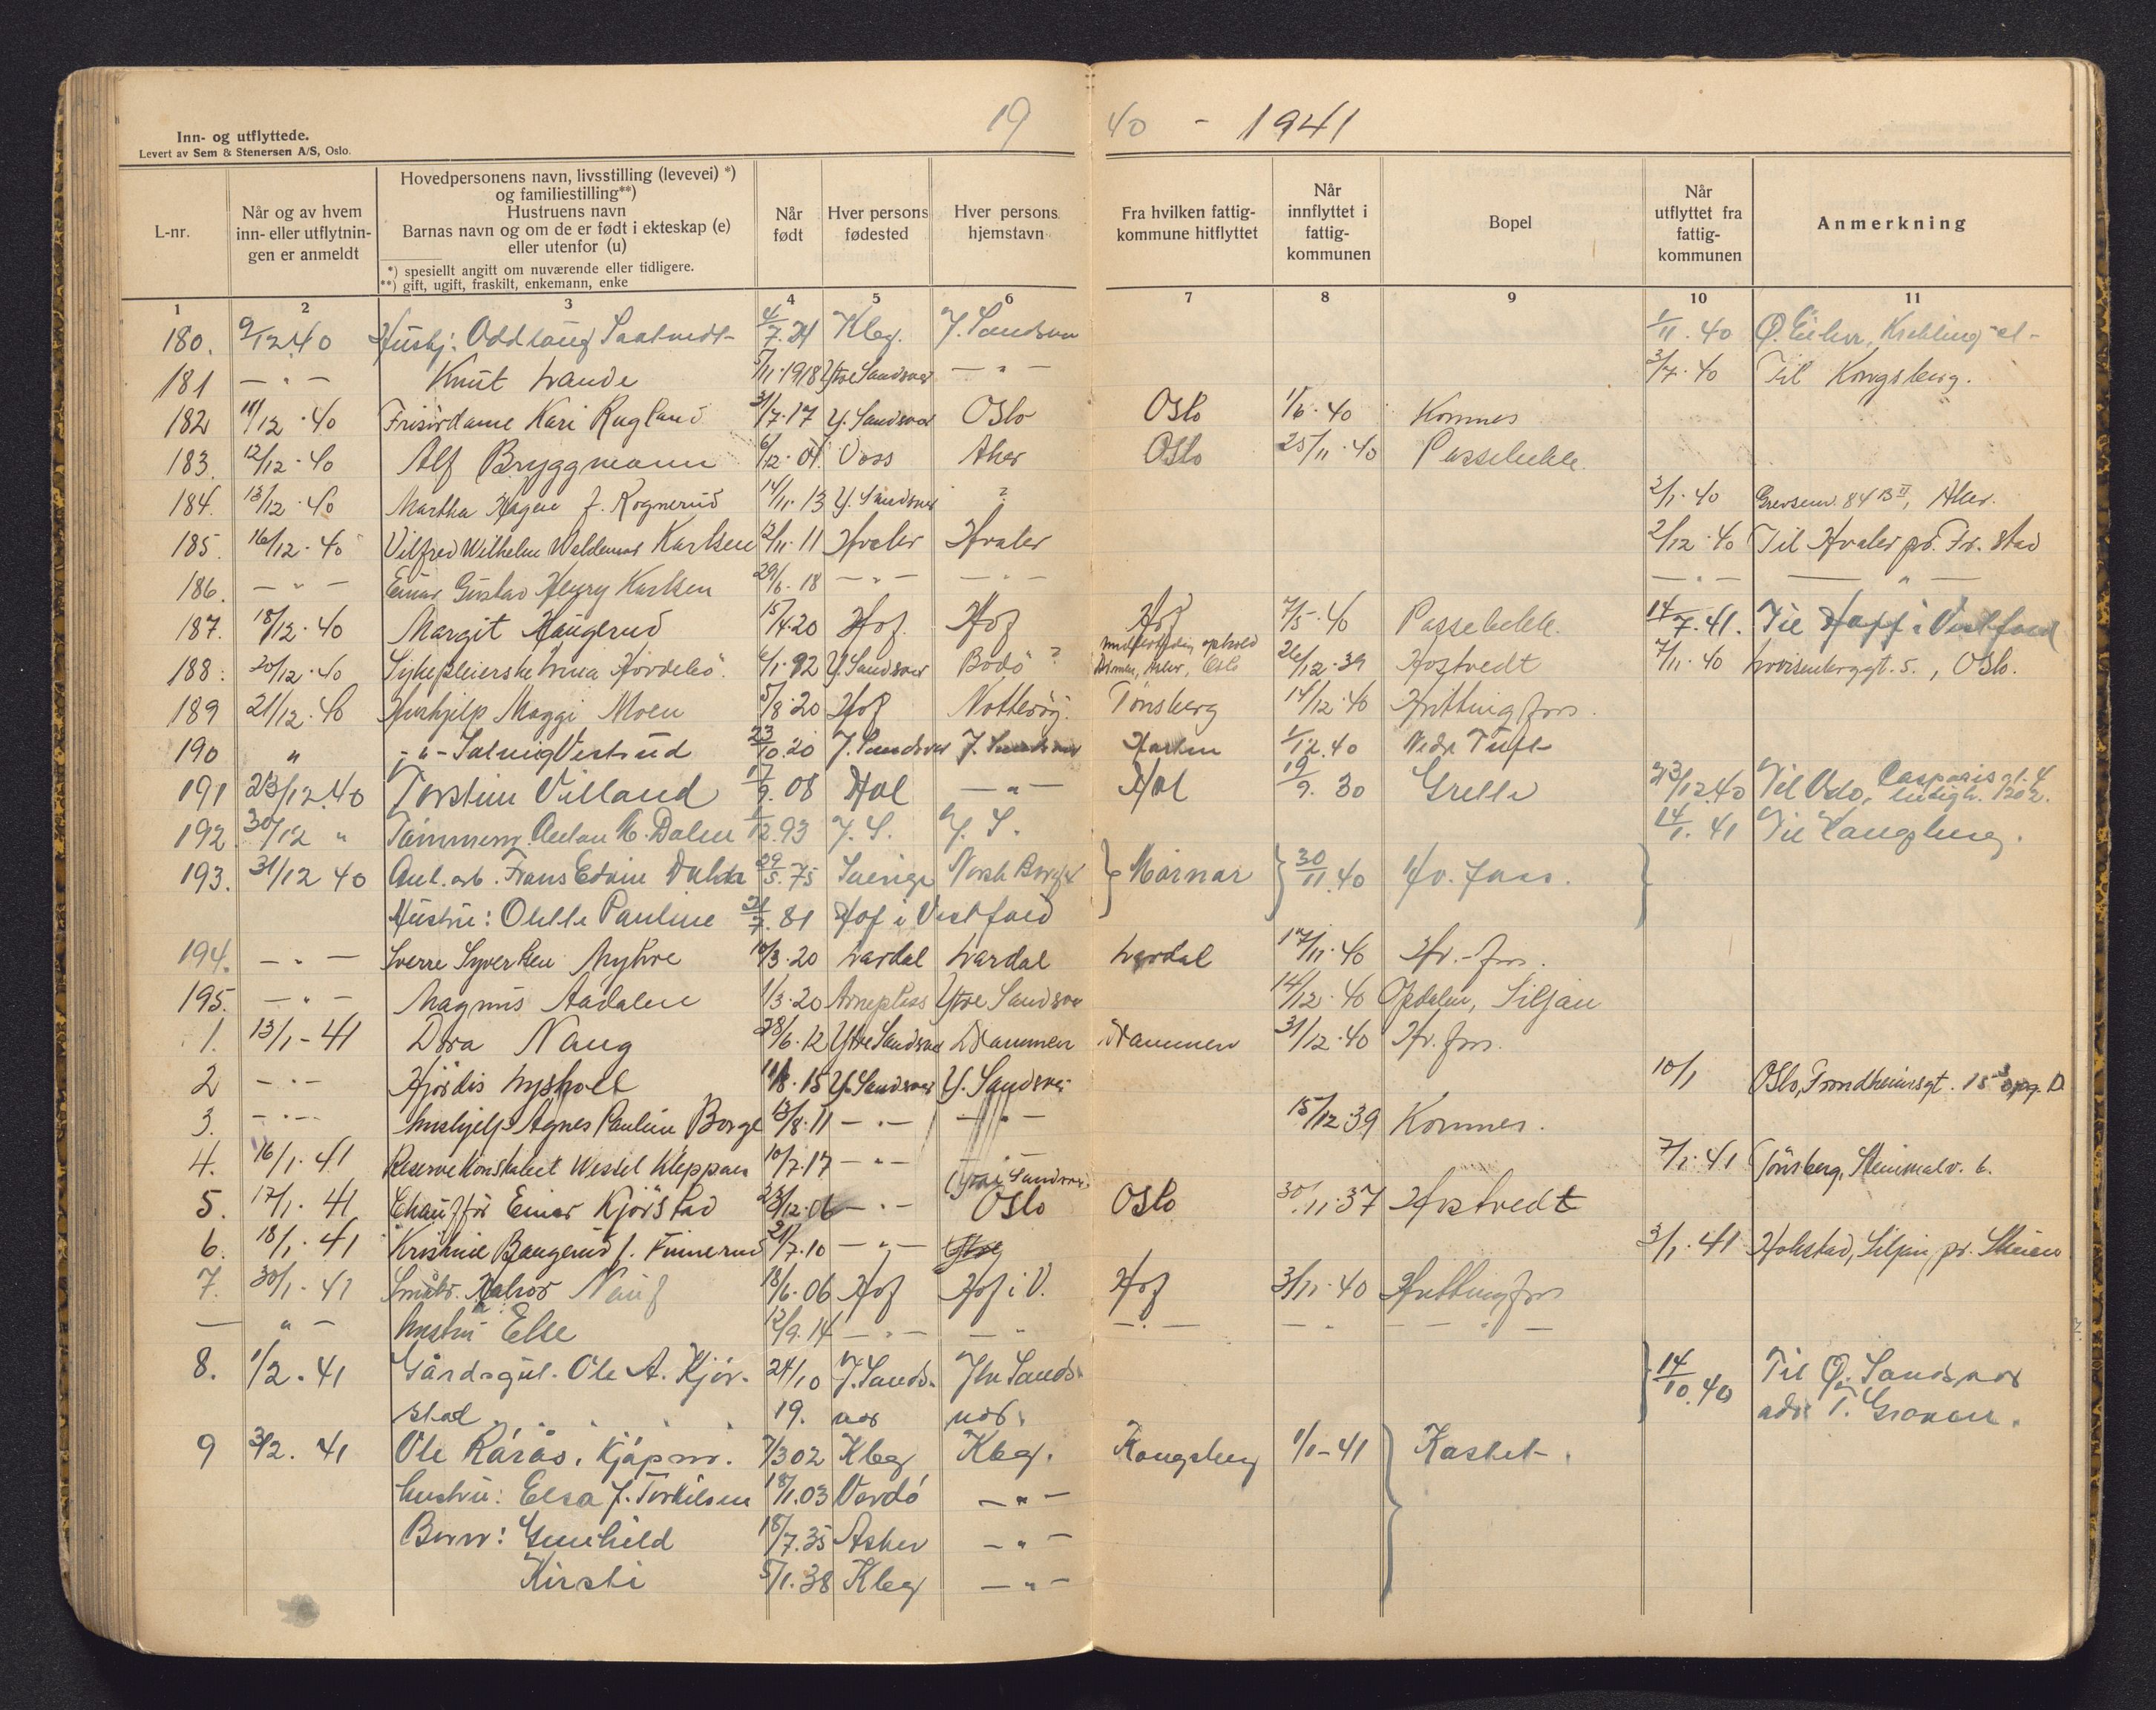 19 40 - 1941
Inn- og utflyttede.
Levert av Sem & Stenersen A/S, Oslo.
L-nr.
Når og av hvem inn- eller utflytnin-gen er anmeldt
Hovedpersonens navn, livsstilling (levevei) *)
og familiestilling**)
Hustruens navn
Barnas navn og om de er født i ekteskap (e)
eller utenfor (u)
*) spesiellt angitt om nuværende eller tidligere.
**) gift, ugift, fraskilt, enkemann, enke
Når født
Hver persons fødested
Hver persons hjemstavn
Fra hvilken fattig-kommune hitflyttet
Når innflyttet i fattig-kommunen
Bopel
Når utflyttet fra fattig-kommunen
Anmerkning
1 2 3 4 5 6 7 8 9 10 11
180. 9/12 40 Hushj: Oddlaug 4/7. Kbg. Y. Sandsvær 1/11. 40
181 — " — Knut Lande 5/11. 1918 Ytre Sandsver — " — 3/7. 40 Til Kongsberg.
182 11/12. 40 Frisørdame Kari Rugland 31/7. 17 Y. Sandsver Oslo Oslo 1/6. 40 Komnes
183. 12/12. 40 Alf Bryggmann 6/12. 01. Voss Aker Oslo 25/11. 40 Passebekk
184. 13/12. 40 Martha Hagen f. Rognerud 14/11. 13 Y. Sandsver ? 2/1. 40 Grevsenv. 84 B II, Aker.
185. 16/12. 40 Vilfred Wilhelm Waldemar Karlsen 12/11. 11 Hvaler Hvaler 2/12. 40 Til Hvaler pr. Fr. stad
186. — " — Einar Gustav Henry Karlsen 29/6. 18 — " — — " — — " — — " —
187. 18/12. 40 Margit Haugerud 15/4. 20 Hof. Hof Hof 7/5. 40 Passebekk. 14/7. 41. Til Hoff i Vestfold
188. 20/12. 40 Sykepleierske 6/1. 92 Y. Sandsver Bodö ? midlertidig ophold Asker, Oslo 26/12. 39 Hostvedt 7/11. 40 Lovisenberggt. 5., Oslo.
189 21/12. 40 Hushjelp Maggi Moen 5/8. 20 Hof Nøtterøy. Tönsberg 14/12. 40 Hvittingfoss.
190 " - " - Solveig Vestrud 23/10. 20 Y. Sandsver Y. Sandsver 1/12. 40 Nedr Tuft
191 23/12. 40 Torstein Villand 17/9. 08 Hol — " — Hol 19/9. 30 Grette 23/12. 40 Til Oslo, Casparis gt. 4
192 30/12 " Tømmerm. Anton M. Dalen 1/12. 93 Y. S. Y. S. 14/1. 41 Til Kongsberg.
193. 31/12 40 Anl. arb. Frans Edvin 29/5. 75 Sverige Norsk Borger Mårnar 30/11. 40 Hv. foss.
Hustru: Pauline 21/7. 81 Hof i Vestfold
194. — " — Sverre Syversen Myhre 10/3. 20 Lardal Lardal Lardal 17/11. 40 Hv.-foss.
195. — " — Magnus Aadalen 1/3. 20 Ytre Sandsver 14/12. 40 Opdalen, Siljan
1. 13/1 - 41 Dora Naug 28/6. 12 Ytre Sandsver Drammen Drammen 31/12. 40 Hv. foss.
2 — " — Hjördis Lysholt 11/8. 15 Y. Sandsver Y. Sandsver 10/1 Oslo, Trondheimsgt. 15 opg. D
3. — " — Hushjelp Agnes Pauline Borge 13/8. 11 — " — — " — 15/12 39 Komnes.
4. 16/1. 41 Reservekonstabel Wessel Kleppan 10/7. 17 — " — Ytre Sandsver 7/1. 41 Tönsberg, Steinmalv. 6.
5. 17/1. 41 Chaufför Einar Kjörstad 23/12. 06 — " — Oslo Oslo 30/11. 37 Hostvedt
6. 18/1. 41 Kristine Baugerud f. Finnerud 21/7. 10 — " — Ytre 3/1. 41 Holstad, Siljan, pr. Skien
7. 30/1. 41 Småbr. Halvor Naug 18/6. 06 Hof Hof i V. Hof 3/11. 40 Hvittingfoss
— " — Hustru Else 12/9. 14 — " — — " — " — — " — — " —
8. 1/2. 41 Gårdsgut. Ole A. Kjör- 24/10 Y. Sands- Ytre Sands- 14/10. 40 Til Ø. Sandsver
stad 19. ver ver adr. T. Granan.
9 3/2. 41 Ole Rårås. Kjøpm. 7/3 02 Kbg Kbg. Kongsberg 1/1 - 41 Kastet.
Hustru: Elsa f. Torkilsen 18/1. 03 Vardö — " —
Barn: Gunhild 18/7. 35 Asker — " —
Kirsti 5/1. 38 Kbg — " —